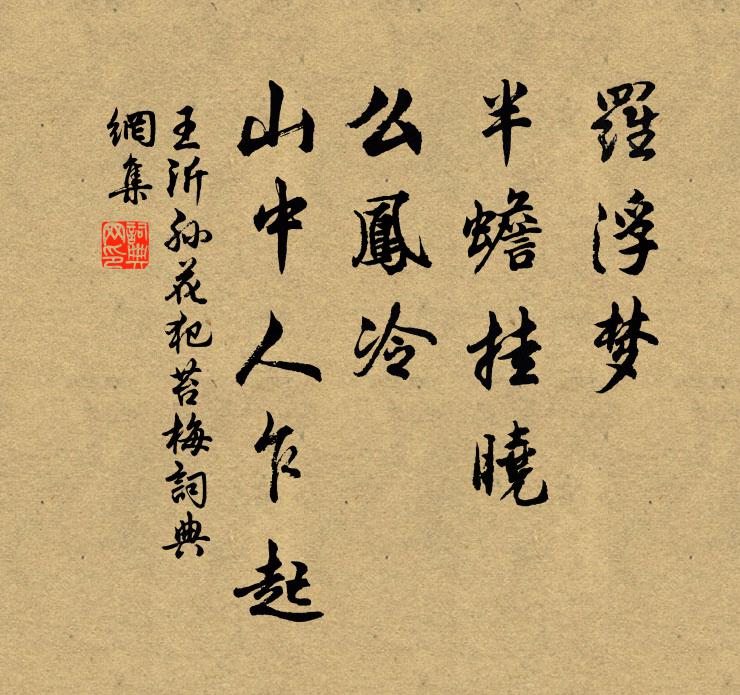 羅浮梦
半蟾挂曉
么鳳冷
山中人乍起
王沂孙花犯苔梅詞典
網集
詞典
网印